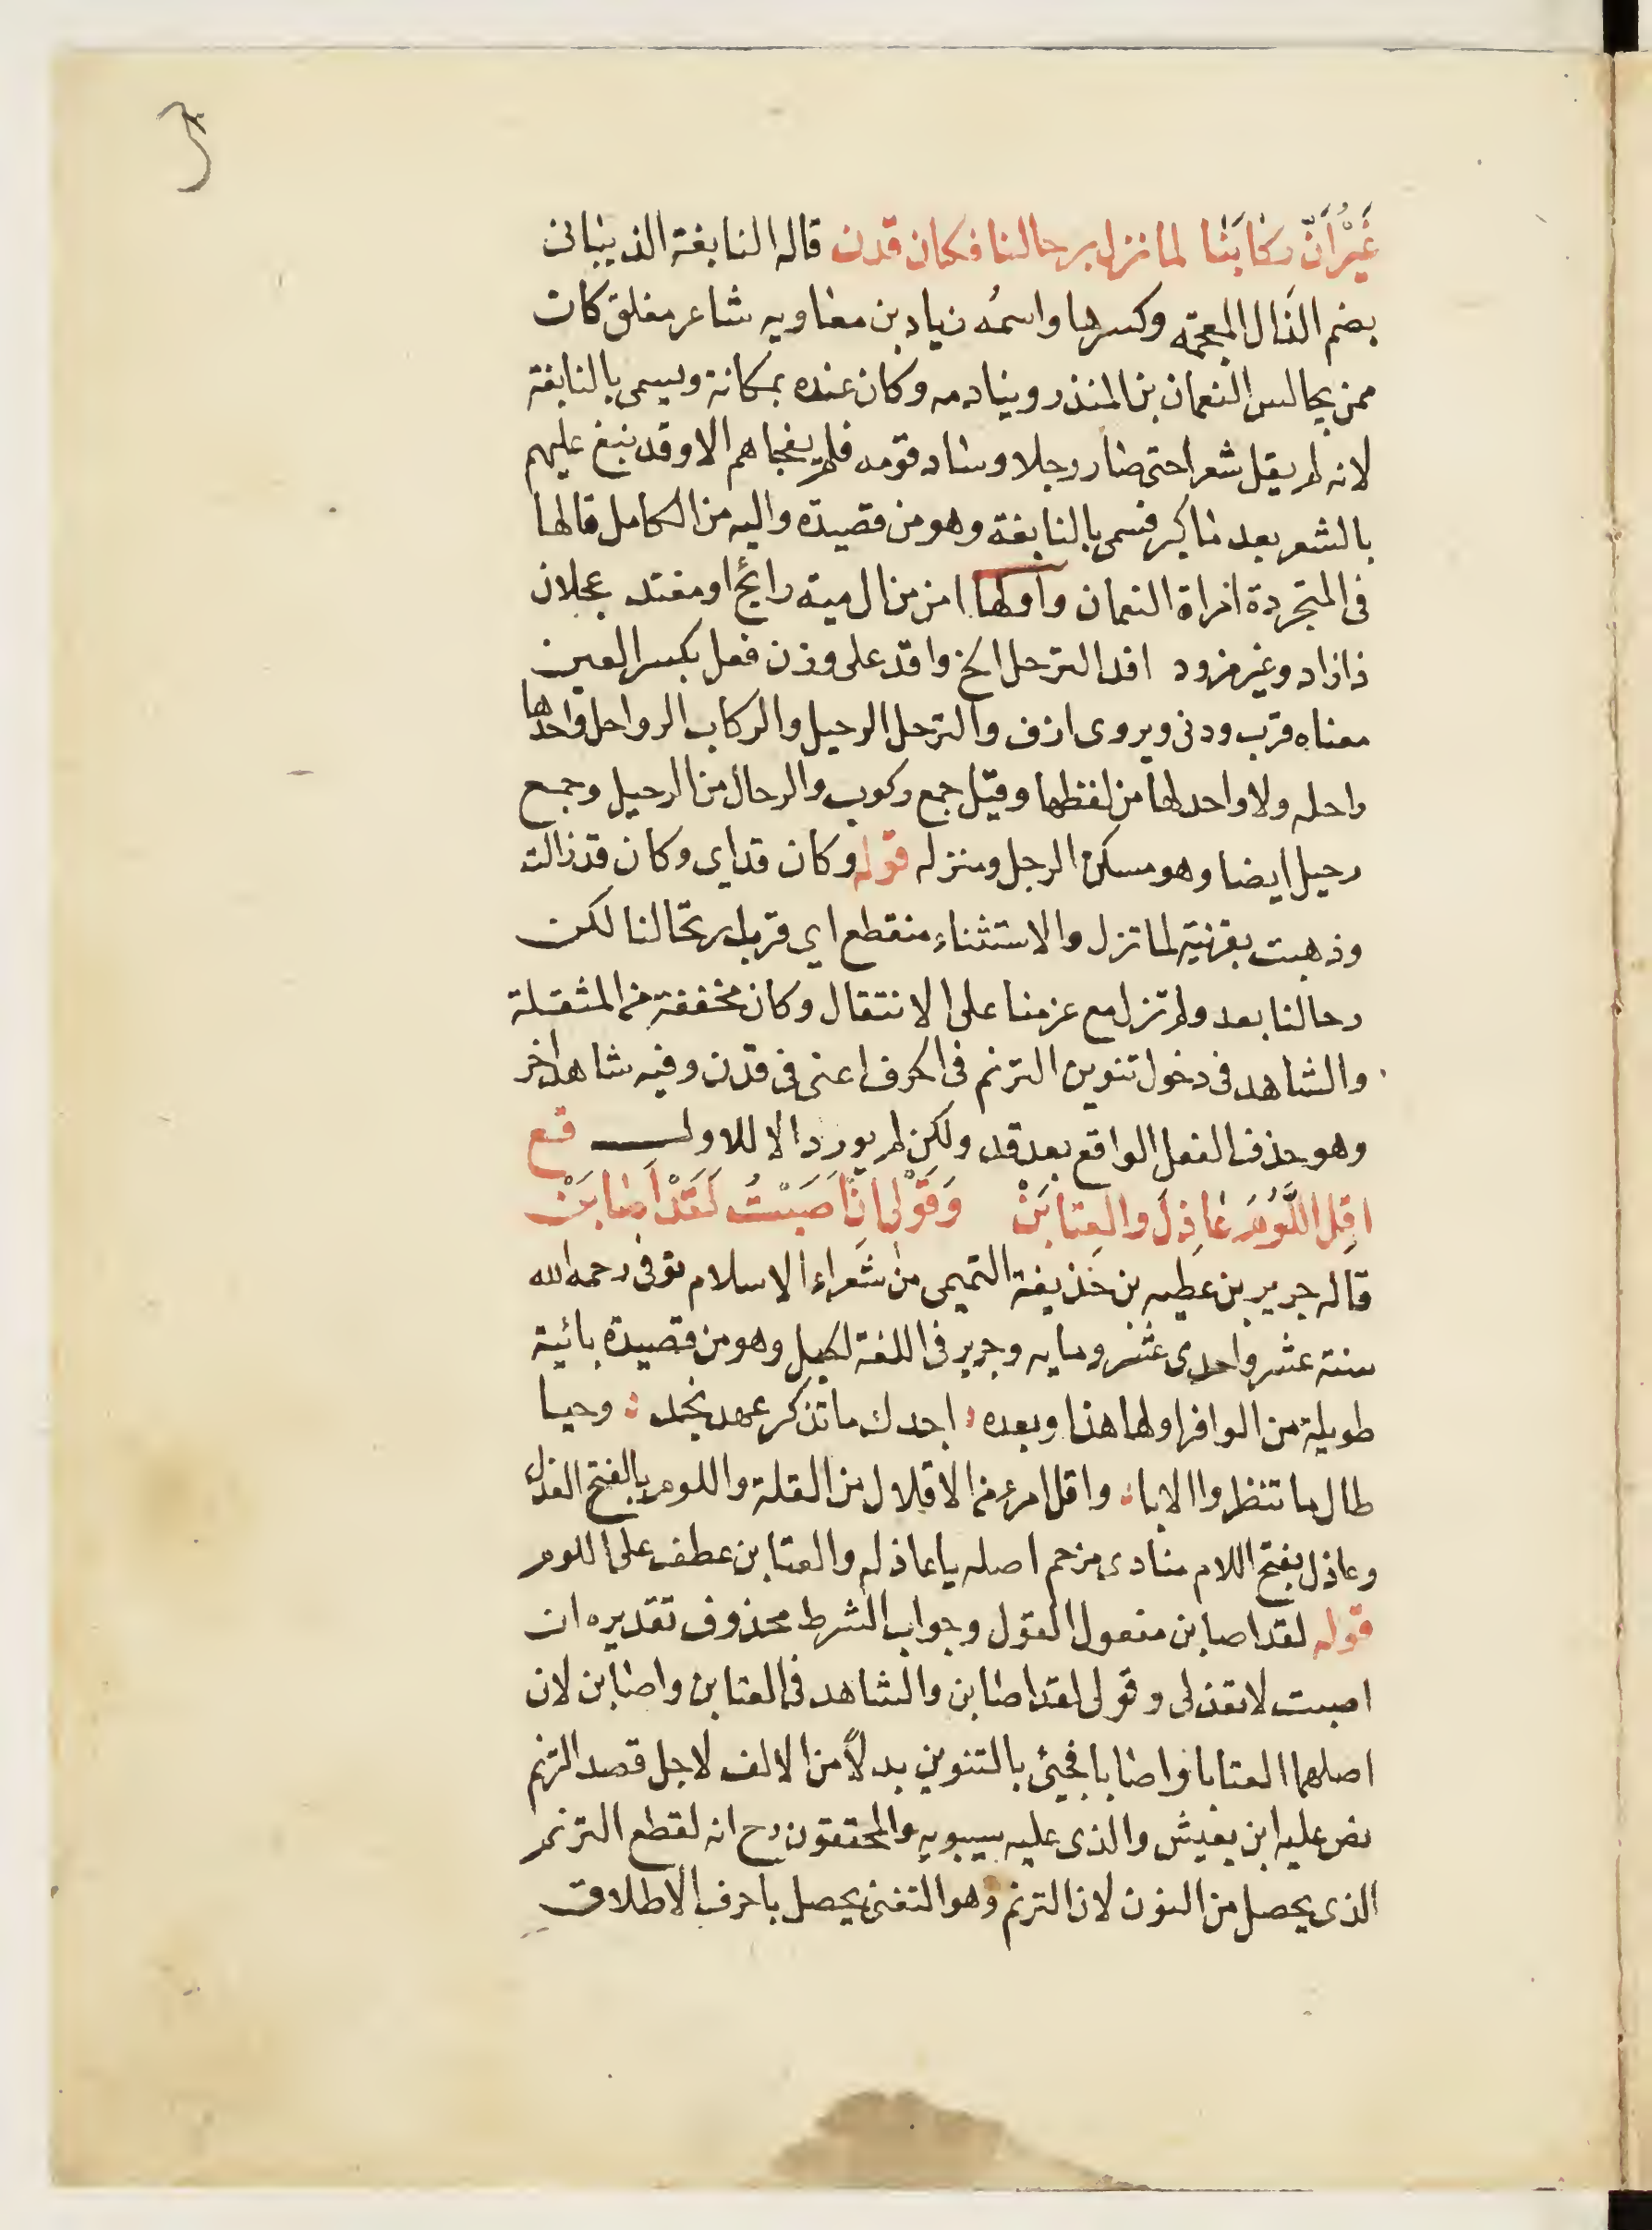 غَيْرُ أَنَّ ركابَنا لما نزل برحالنا فكان قدن قاله النابغة الذبيانى
بضم الذال المعجمه وكسرها واسمه زياد بن معاويه شاعر مفلق كان
ممن يجالس النعمان بن المنذر وينادمه وكان عنده بمكانة ويسمى بالنابغة
لانه لم يقل شعرا حتى صار رجلا وساد قومه فلم يفجاهم الا وقد نبغ عليهم
بالشعر بعد ما كبر فسمى بالنابغة وهو من قصيدة واليه من الكامل قالها
فى المتجردة امراة النعمان وأولها امن من ال مية رايح او مغتد عجلان
ذا زاد وغير مزود افد الترحل الخ وافد على وزن فعل بكسر العين
معناه قرب ودنى ويروى ازف والترحل الرحيل والركاب الرواحل واحدها
راحله ولا واحد لها من لفظها وقيل جمع ركوب والرحال من الرحيل وجمع
رحيل ايضا وهو مسكن الرجل ومنزله قوله وكان قد اى وكان قد زالت
وذهبت بقرنية لما تزل والاستثناء منقطع اي قرب ارتحالنا لكن
رحالنا بعد ولم تزل مع عزمنا على الانتقال وكان مخففة من المثقلة
والشاهد فى دخول تنوين الترنم فى الحرف اعنى فى قدن وفيه شاهد اخر
وهو حذف الفعل الواقع بعد قد ولكن لم يورد الا للاول قع
اقِلى اللَّوْمَ عَاذِلَ والعِتابَنْ وَقَوْلى ان اَصَبْتُ لَقَدْ اَصابَنْ
قاله جرير بن عطيه بن حذيفة التميمى من شعراء الاسلام توفى رحمه الله
سنة عشر واحدى عشر ومايه وجرير فى اللغة لحبل وهو من قصيدة بائية
طويلة من الوافر اولها هذا وبعده اجدك ما تذكر عهد نجد وحيا
طال ما تنظروا الايابا واقل امر من الاقلال من القلة واللوم بالفتح العذل
وعاذل بفتح اللام منادى مرخم اصله يا عاذله والعتابن عطف على اللوم
قوله لقد اصابن مفعول القول وجواب الشرط محذوف تقديره ان
اصبت لا تعذلى وقولى لقد اصابن والشاهد فى العتابن واصابن لان
اصلهما العتابا واصابا فجيئ بالتنوين بدلاً من الالف لاجل قصد الترنم
نص عليه ابن يعيش والذى عليه سيبويه والمحققون رح انه لقطع الترنم
الذى يحصل من النون لان الترنم وهو التغنى يحصل باحرف الاطلاق